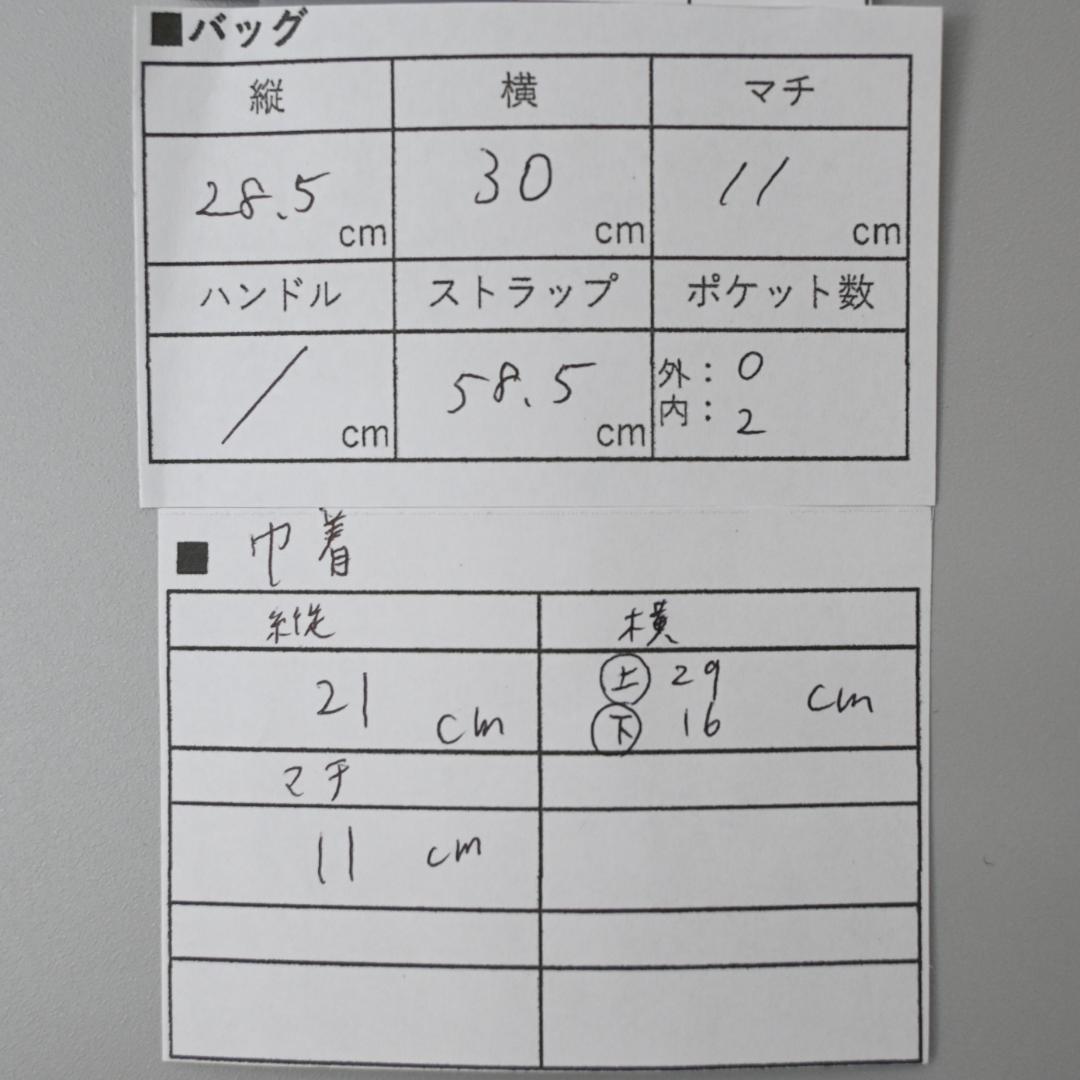 ■バッグ
縦 横 マチ
28.5 cm 30 cm 11 cm
ハンドル ストラップ ポケット数
/ cm 58.5 cm 外: 0
内: 2
■ 巾着
縦 横
21 cm 上 29 cm
下 16
マチ
11 cm